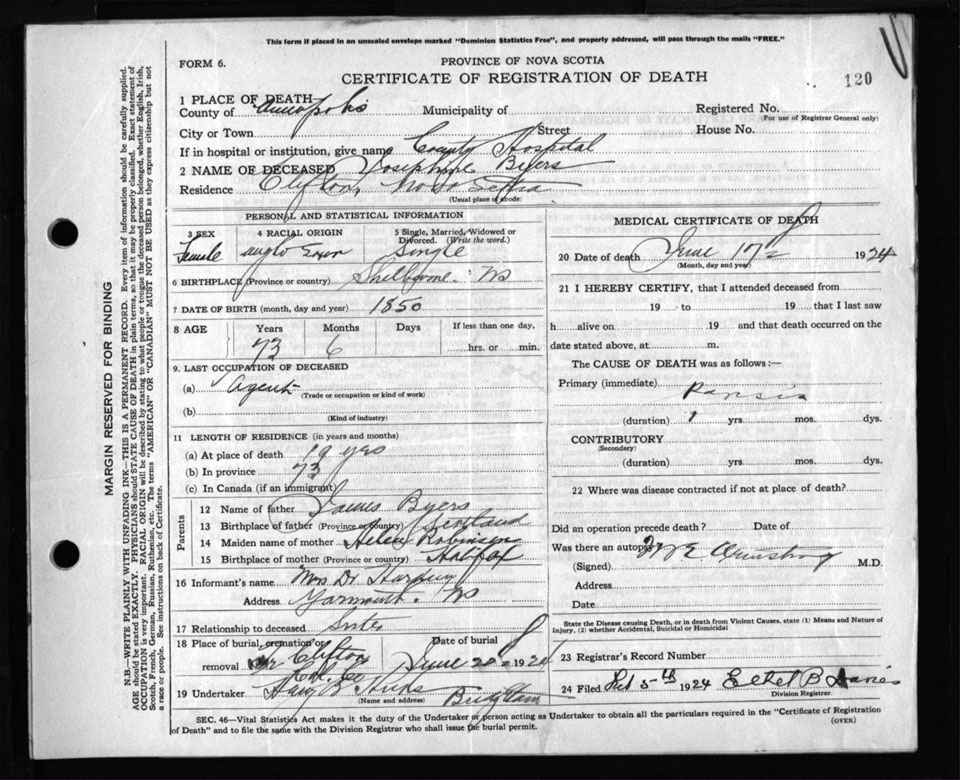 This form if placed in an unsealed envelope marked "Dominion Statistics Free", and properly addressed, will pass through the mails "FREE."
FORM 6.
PROVINCE OF NOVA SCOTIA
CERTIFICATE OF REGISTRATION OF DEATH
120
1 PLACE OF DEATH
County of Annapolis Municipality of Registered No.
(For use of Registrar General only)
City or Town Street House No.
If in hospital or institution, give name County Hospital
2 NAME OF DECEASED Josephine Byers
Residence Clifton, Nova Scotia
(Usual place of abode)
PERSONAL AND STATISTICAL INFORMATION
3 SEX 4 RACIAL ORIGIN 5 Single, Married, Widowed or Divorced. (Write the word.)
Female anglo Single
6 BIRTHPLACE (Province or country) Shelburne NS
7 DATE OF BIRTH (month, day and year) 1850
8 AGE Years Months Days If less than one day,
73 6 hrs. or min.
9. LAST OCCUPATION OF DECEASED
(a) Agent
(Trade or occupation or kind of work)
(b)
(Kind of industry)
11 LENGTH OF RESIDENCE (in years and months)
(a) At place of death 19 yrs
(b) In province 73
(c) In Canada (if an immigrant)
Parents
12 Name of father James Byers
13 Birthplace of father (Province or country) Scotland
14 Maiden name of mother Helen Robinson
15 Birthplace of mother (Province or country) Halifax
16 Informant's name Mrs Dr
Address Yarmouth. NS
17 Relationship to deceased Sister
18 Place of burial, cremation or removal Clifton Col. Co Date of burial June 20 1924
19 Undertaker
(Name and address)
MEDICAL CERTIFICATE OF DEATH
20 Date of death June 17 1924
(Month, day and year)
21 I HEREBY CERTIFY, that I attended deceased from
19 to 19 that I last saw
h alive on 19 and that death occurred on the
date stated above, at m.
The CAUSE OF DEATH was as follows:—
Primary (immediate)
(duration) 1 yrs. mos. dys.
CONTRIBUTORY
(Secondary)
(duration) yrs. mos. dys.
22 Where was disease contracted if not at place of death?
Did an operation precede death? Date of
Was there an autopsy
(Signed) Armstrong M.D.
Address
Date
State the Disease causing Death, or in death from Violent Causes, state (1) Means and Nature of Injury, (2) whether Accidental, Suicidal or Homicidal
23 Registrar's Record Number
24 Filed 5th 1924 Ethel B
Division Registrar.
SEC. 46—Vital Statistics Act makes it the duty of the Undertaker or person acting as Undertaker to obtain all the particulars required in the "Certificate of Registration
of Death" and to file the same with the Division Registrar who shall issue the burial permit. (OVER)
MARGIN RESERVED FOR BINDING
N.B.—WRITE PLAINLY WITH UNFADING INK—THIS IS A PERMANENT RECORD. Every item of information should be carefully supplied.
AGE should be stated EXACTLY. PHYSICIANS should STATE CAUSE OF DEATH in plain terms, so that it may be properly classified. Exact statement of
OCCUPATION is very important. RACIAL ORIGIN will be described by stating to what people or tongue the deceased person belonged, whether English, Irish,
Scotch, French, German, Russian, Ruthenian, etc. The terms "AMERICAN" OR "CANADIAN" MUST NOT BE USED as they express citizenship but not
a race or people. See instructions on back of Certificate.